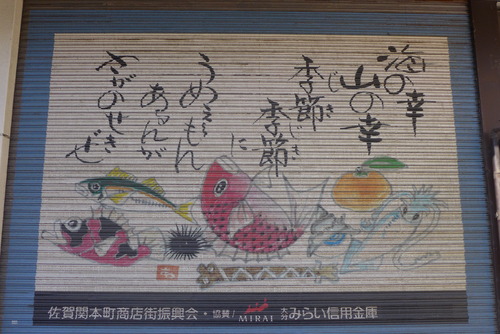 海の幸
山の幸
季節
じき
季節に
じき
うめぇもん
あるんが
さがのせきぜ
佐賀関本町商店街振興会・協賛/ MIRAI 大分みらい信用金庫